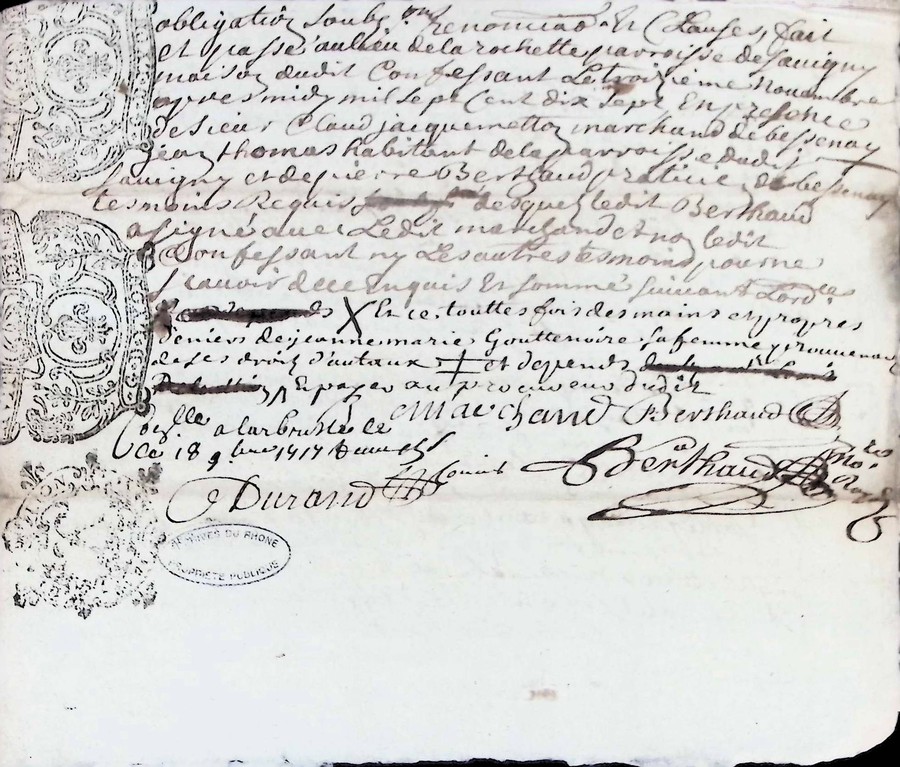 obligation soub.ons Renonciaon Et Clauses, fait
et passé au lieu de la rochette parroisse de Savigny
maison dudit Confessant Le troisieme Novembre
apres midy mil sept Cent dix sept En presence
de sieur Claud jacquemetton marchand de bessenay
jean thomas habitant de la parroisse dudit
Savigny et de pierre Berthaud praticien de bessenay
tesmoins Requis desquels ledit Berthaud
a signé avec Ledit marchand et non ledit
Confessant ny Les autres tesmoins pour ne
scavoir de ce Enquis Et sommé suivant Lordces
X Et ce touttes fois des mains et propres
deniers de jeanne marie Gouttenoire sa femme provenan
de ses droits dautaux et depends
payer au dudit
Marchand Berthaud
Conllé a larbresle le
Le 18 9bre 1717
Durand Berthaud
No.re Roy
ARCHIVES DU RHONE
PROPRIÉTÉ PUBLIQUE